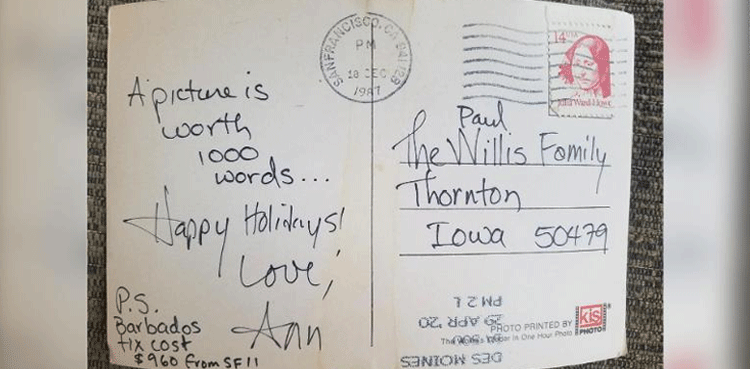 A picture is
worth
1000
words...
Happy Holidays!
Love,
Ann
P.S.
Barbados
tix cost
$960 from SF!!
SAN FRANCISCO, CA 941
PM
18 DEC
1987
14 USA
Julia Ward Howe
Paul
The Willis Family
Thornton
Iowa 50479
DES MOINES
29 APR '20
PM 2 L
PHOTO PRINTED BY
The World's Leader in One Hour Photo
kis
PHOTO